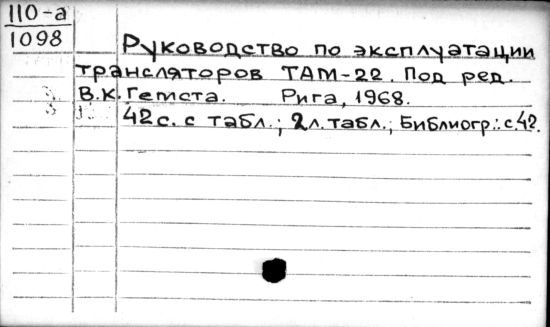 110-а
1098
Руководство по эксплуатации
трансляторов ТАМ-22. Под ред.
В.К. Гемста. Рига, 1968.
42 с. с табл.; 2 л. табл.; Библиогр.: с. 42.